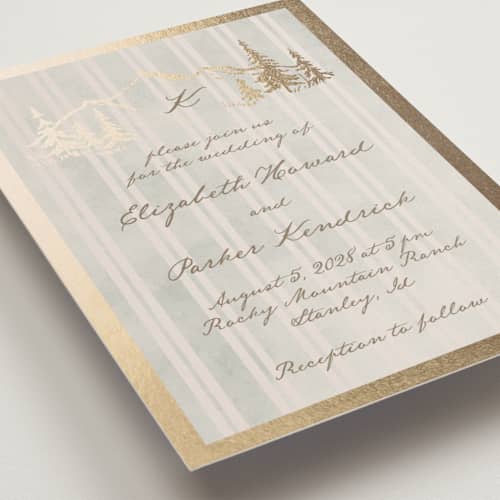 K
please join us
for the wedding of
Elizabeth Howard
and
Parker Kendrick
August 5, 2028 at 5 pm
Rocky Mountain Ranch
Stanley, Id
Reception to follow